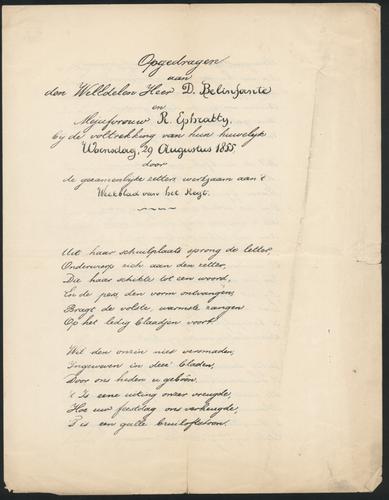 Opgedragen
aan
den WelEdelen Heer D. Belinfante
en
Mejufvrouw R. Ephratty,
bij de voltrekking van hun huwelijk
Woensdag, 29 Augustus 1855
door
de gezamenlijke zetters werkzaam aan 't
Weekblad van het Regt.

Uit haar schuilplaats sprong de letter,
Onderwierp zich aan den zetter,
Die haar schikte tot een woord,
En de pers, den vorm ontvangen,
Bragt de volste, warmste zangen
Op het ledig blaadjen voort.

Wil den onzin niet versmaden,
Ingeweven in deez' bladen,
Door ons heden u geboôn.
't Is eene uiting onzer vreugde,
Hoe uw feestdag ons verheugde,
't Is een gulle bruiloftstoon.